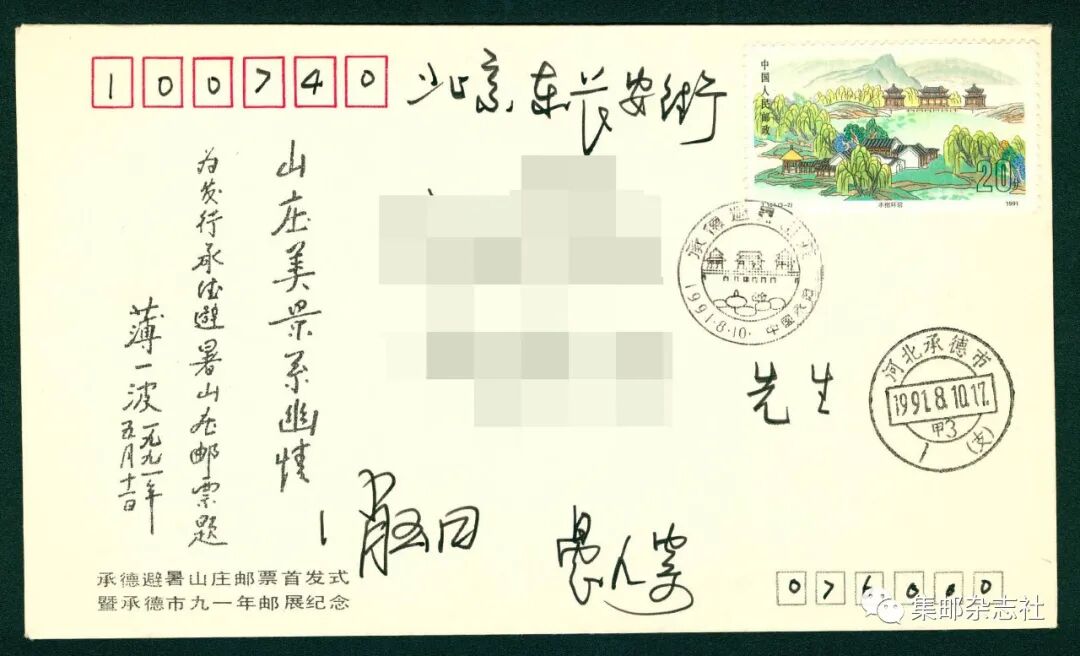 100740
北京东长安街
中国人民邮政
20分
T.164.(3-2)
1991
承德避暑山庄
1991.8.10.
先生
河北承德市
1991.8.10.17.
甲3
1
(支)
山庄美景系幽情
为发行承德避暑山庄邮票题
薄一波
一九九一年
五月十二日
承德避暑山庄邮票首发式
暨承德市九一年邮展纪念
076000
集邮杂志社